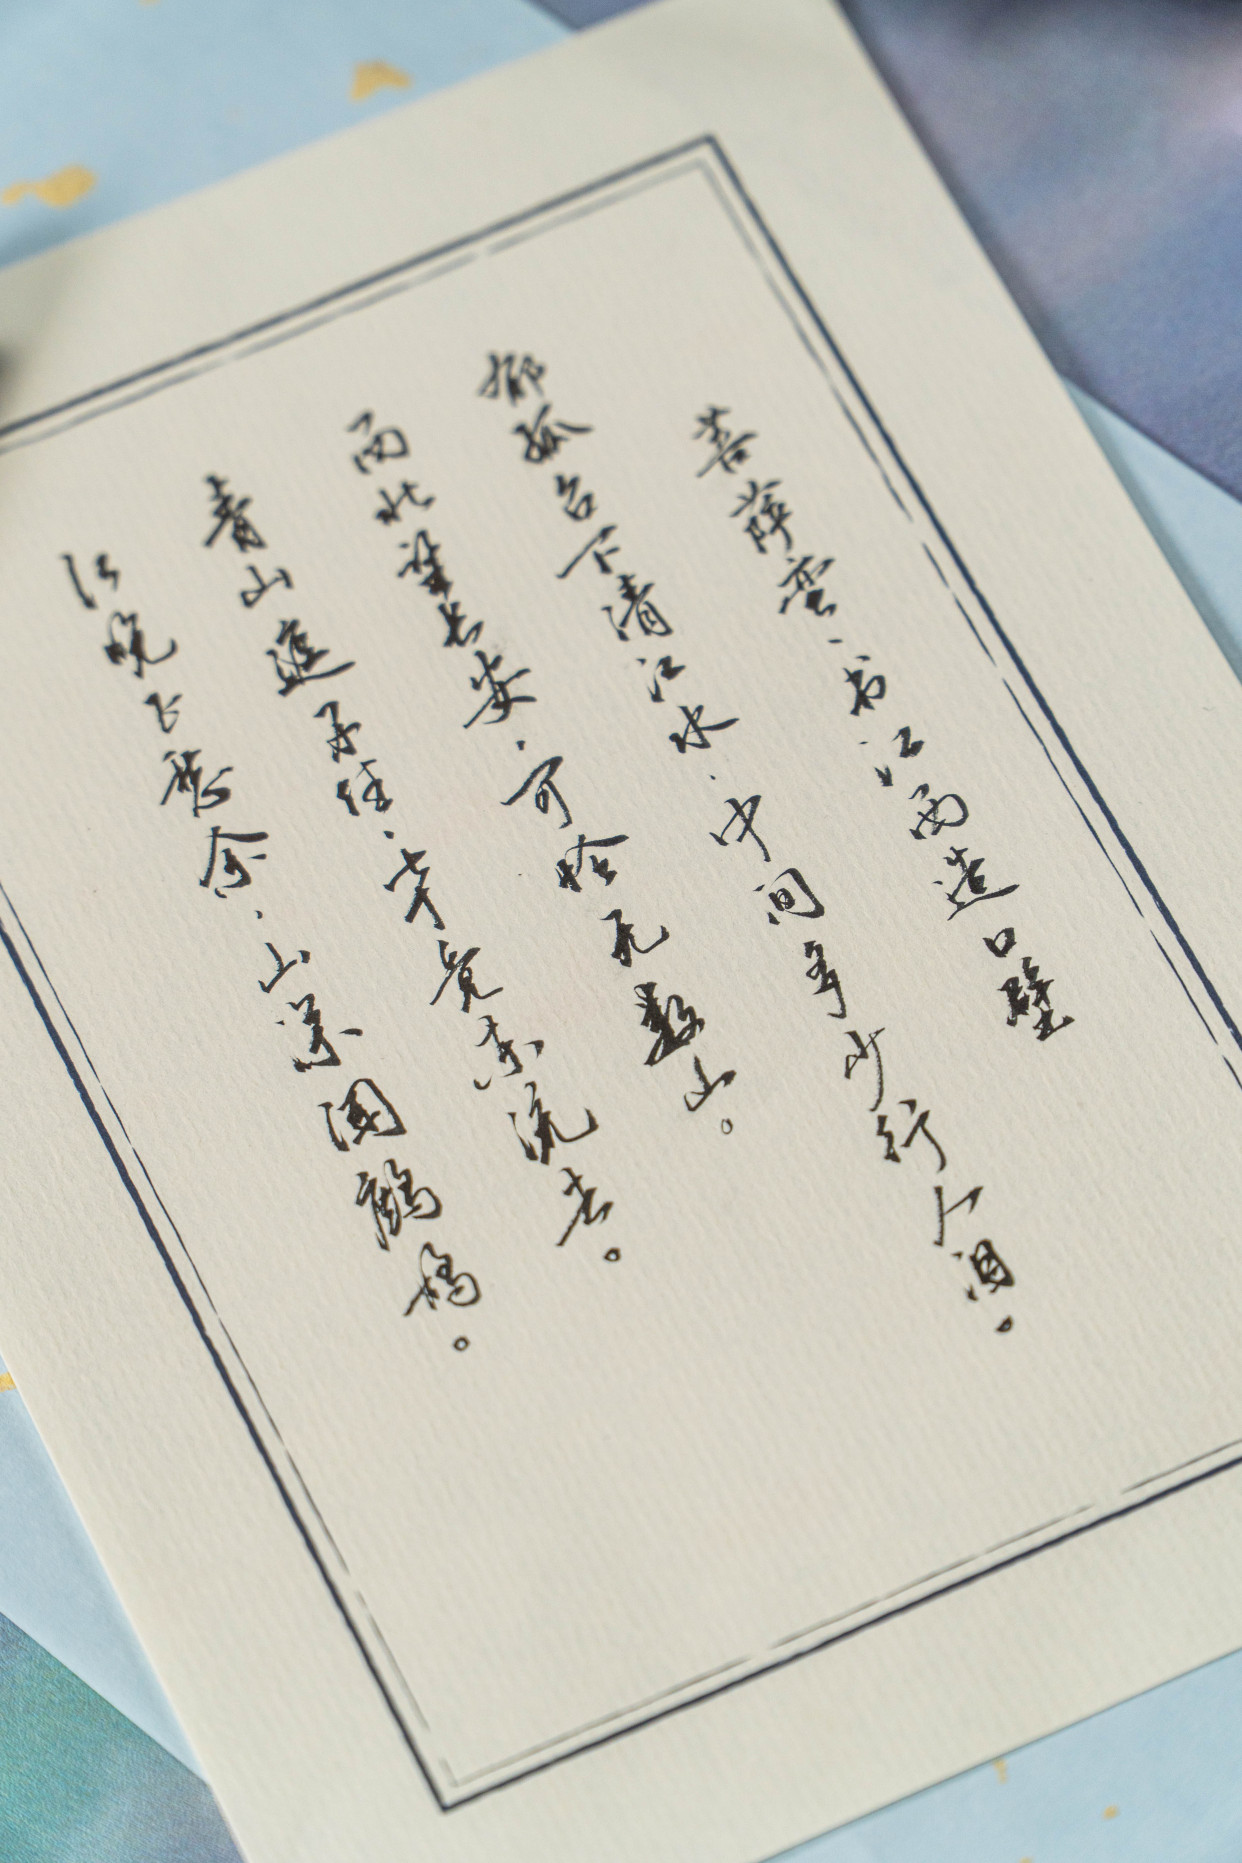 菩萨蛮、书江西造口壁
郁孤台下清江水、中间多少行人泪。
西北望长安、可怜无数山。
青山遮不住、毕竟东流去。
江晚正愁余、山深闻鹧鸪。